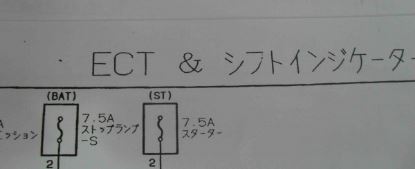 ECT & シフトインジケーター
(BAT)
7.5A
ストップランプ
-S
2
(ST)
7.5A
スターター
2
A
ッション